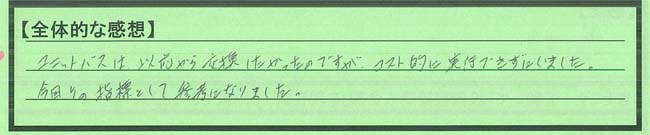 【全体的な感想】
ユニットバスは、以前から交換したかったのですが、コスト的に実行できずにいました。
今回の指標として参考になりました。